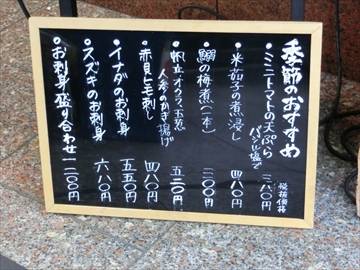 季節のおすすめ
税抜価格
・ミニトマトの天ぷら
バジル塩で 三八〇円
・米茄子の煮浸し 四八〇円
・鰯の梅煮(一本) 二〇〇円
・帆立、オクラ、玉葱
人参のかき揚げ 五二〇円
・赤貝ヒモ刺し 四八〇円
・イナダのお刺身 五五〇円
・スズキのお刺身 六八〇円
・お刺身盛り合わせ 一二〇〇円